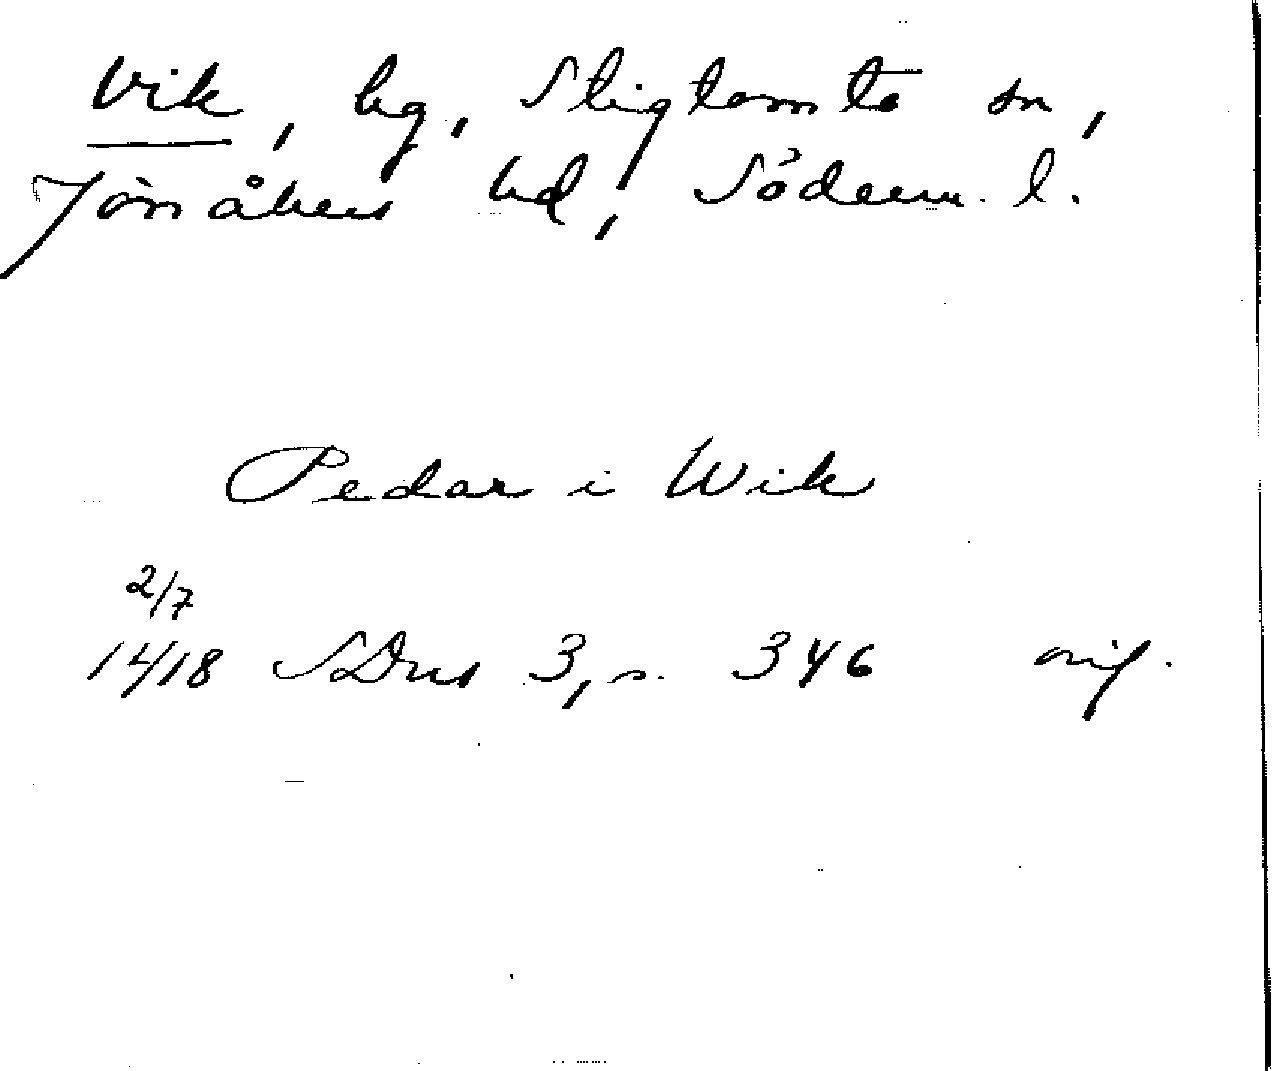 Vik, hg, Stigtomta sn,
Jönåkers hd, Söderm. l.
Pedar i Wik
2/7
1418 SDns 3, s. 346 orig.